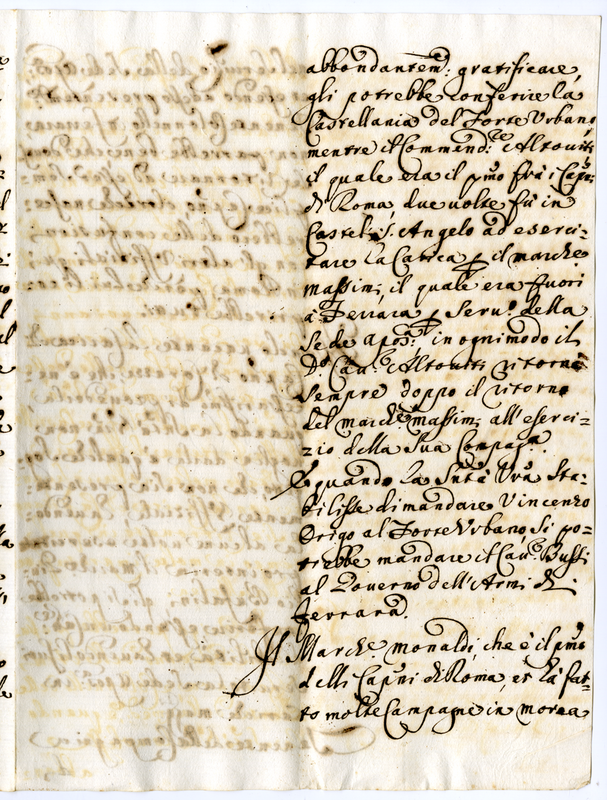 abbondantem: gratificare,
gli potrebbe conferire la
Castellania del Forte Urbano,
mentre il Commend:re Altoviti
il quale era il pmo frà i Capni:
di Roma, due volte fù in
Castel S. Angelo ad eserci=
tare la Carica p il march:e
massimi, il quale era fuori
à Ferrara p seru:o della
Sede apos:ca in ognimodo il
Do Cau:re Altoviti ritornò
sempre doppo il ritorno
del march:e massimi all'eserci=
zio della sua Compag:a.
E quando la Sntà Vrã Sta=
bilisse di mandare Vincenzo
Origo al Forte Urbano, si po=
trebbe mandare il Cau:re Bussi
al Governo dell'Armi di
Ferrara.
Il Marche monaldi, che è il pmo
delli Capni di Roma, et hà fat=
to molte Campagne in morea